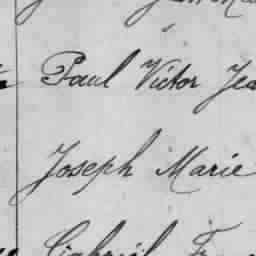 Paul Victor Jea
Joseph Marie
Gabriel Fr